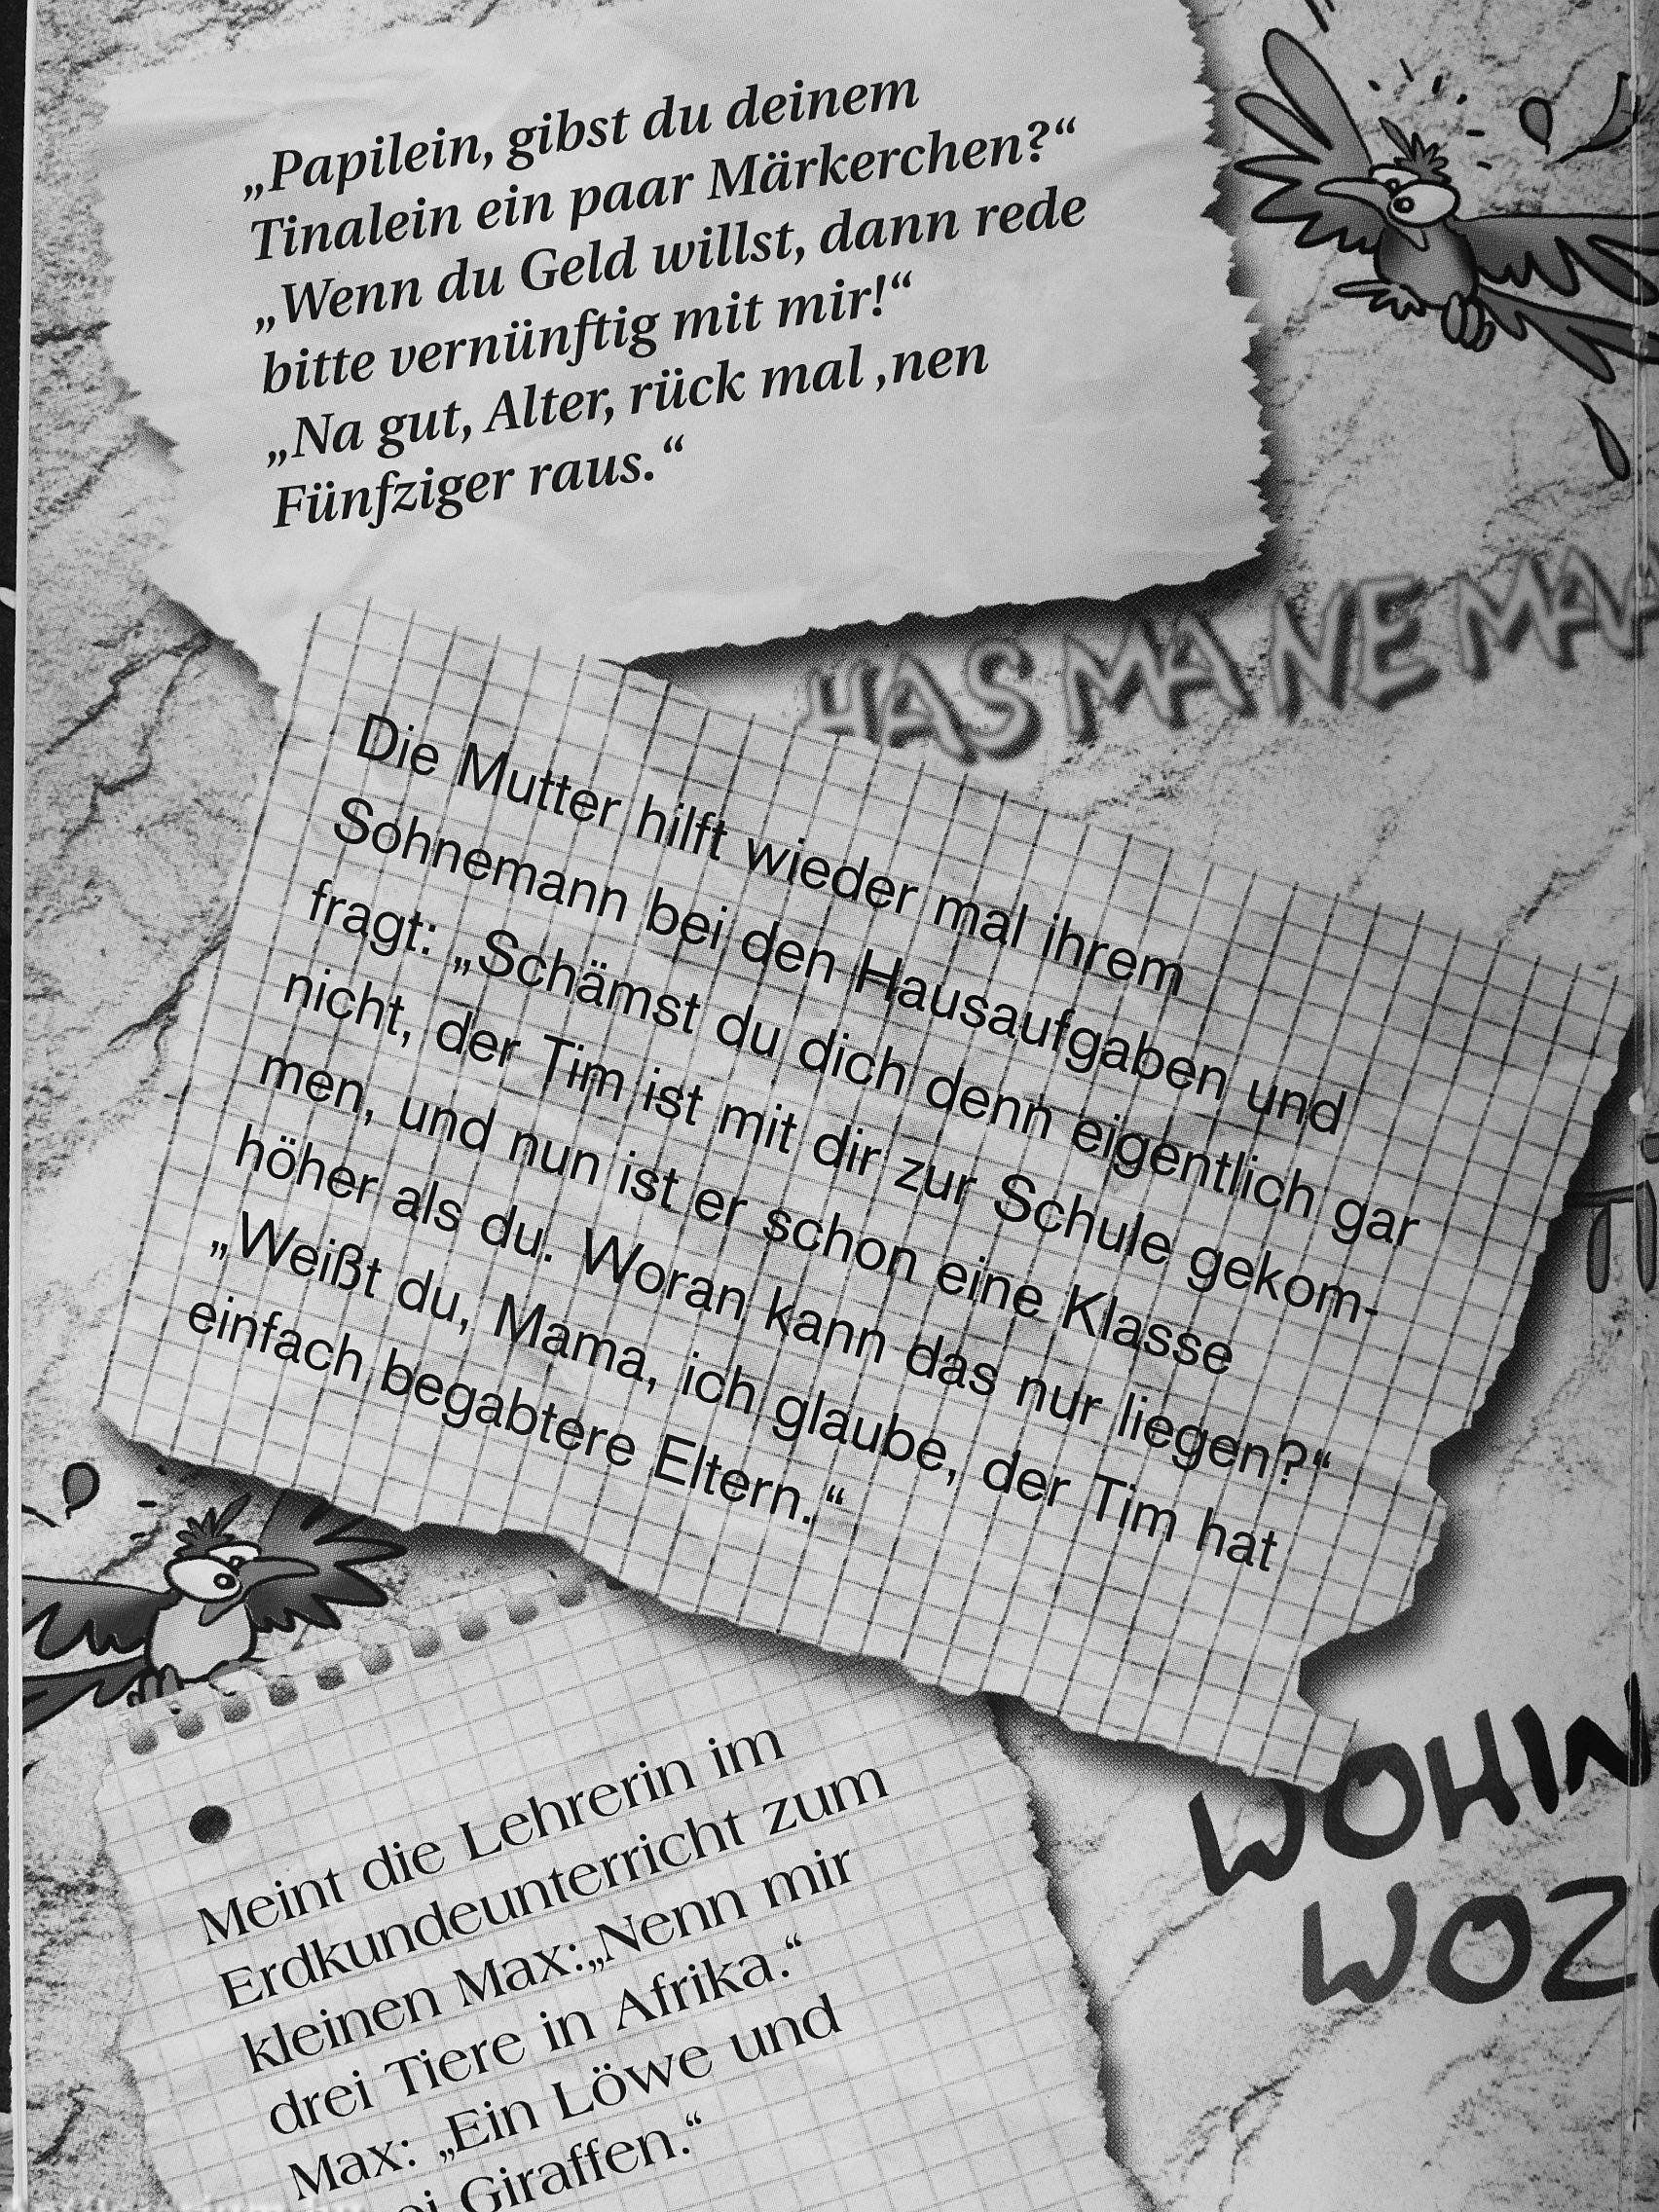 „Papilein, gibst du deinem
Tinalein ein paar Märkerchen?“
„Wenn du Geld willst, dann rede
bitte vernünftig mit mir!“
„Na gut, Alter, rück mal ‚nen
Fünfziger raus.“
HAS MA NE MA
Die Mutter hilft wieder mal ihrem
Sohnemann bei den Hausaufgaben und
fragt: „Schämst du dich denn eigentlich gar
nicht, der Tim ist mit dir zur Schule gekom-
men, und nun ist er schon eine Klasse
höher als du. Woran kann das nur liegen?“
„Weißt du, Mama, ich glaube, der Tim hat
einfach begabtere Eltern.“
WOHIN
WOZ
Meint die Lehrerin im
Erdkundeunterricht zum
kleinen Max:„Nenn mir
drei Tiere in Afrika.“
Max: „Ein Löwe und
Giraffen.“